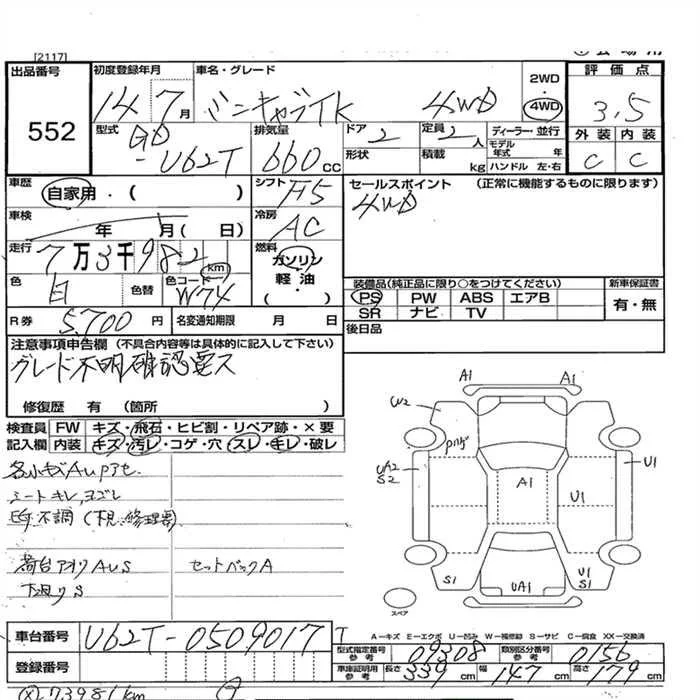 [2117]
出品番号
552
初度登録年月
14 7月
車名・グレード
ミニキャブTK 4WD
2WD
・
4WD
評価点
3.5
外装 内装
C C
型式
GD
-U62T
排気量
660 cc
ドア 2
形状
定員 2 人
積載 kg
ディーラー・並行
モデル年式 年
ハンドル 左・右
車歴
自家用・( )
シフト F5
車検
年 月( 日)
冷房 AC
走行
7万3千982 km
燃料
ガソリン
軽油
( ・ )
色 白
色替
色コード
W74
R券 5,700円
名変通知期限 月 日
セールスポイント (正常に機能するものに限ります)
4WD
装備品(純正品に限り○をつけてください)
PS PW ABS エアB
SR ナビ TV
新車保証書
有・無
後日品
注意事項申告欄 (不具合内容等は具体的に記入して下さい)
グレード不明確認要ス
修復歴 有 (箇所 )
検査員 FW キズ・飛石・ヒビ割・リペア跡・×要
記入欄 内装 キズ・汚レ・コゲ・穴・スレ・キレ・破レ
シートキレ,ヨゴレ
荷台アオリAUS
セットバックA
下廻りS
A1 A1
W2
UA2
S2
A1
U1
U1
S1
UA1
U1
S1
スペア
A―キズ E―エクボ U―凹み W―補修跡 S―サビ C―腐食 XX―交換済
車台番号 U62T-0509017 T
登録番号
型式指定番号 参考 09308
類別区分番号 参考 0156
車庫証明用 参考 長さ 339 cm 幅 147 cm 高さ 179 cm
73981km